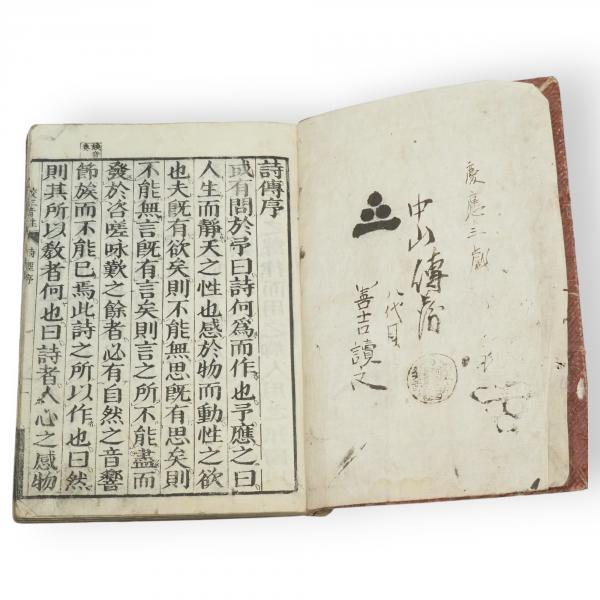 慶應三歳
中山傳
八代目
善吉讀之
詩傳序
或有問於予曰詩何爲而作也予應之曰
人生而靜天之性也感於物而動性之欲
也夫既有欲矣則不能無思既有思矣則
不能無言既有言矣則言之所不能盡而
發於咨嗟咏歎之餘者必有自然之音響
節族而不能已焉此詩之所以作也曰然
則其所以敎者何也曰詩者人心之感物